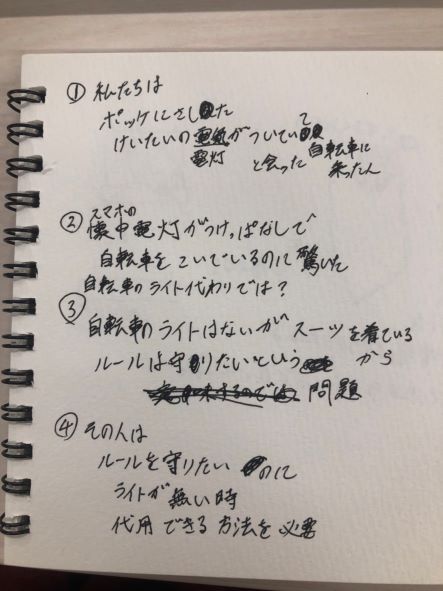 ① 私たちは
ポッケにさした
けいたいの電気がついていて
電灯 と会った 自転車に
乗ったん
② スマホの
懐中電灯がつけっぱなしで
自転車をこいでいるのに驚いた
自転車のライト代わりでは?
③
自転車のライトはないが スーツを着ている
ルールは守りたいという から
問題
④ その人は
ルールを守りたい のに
ライトが無い時
代用できる方法を必要